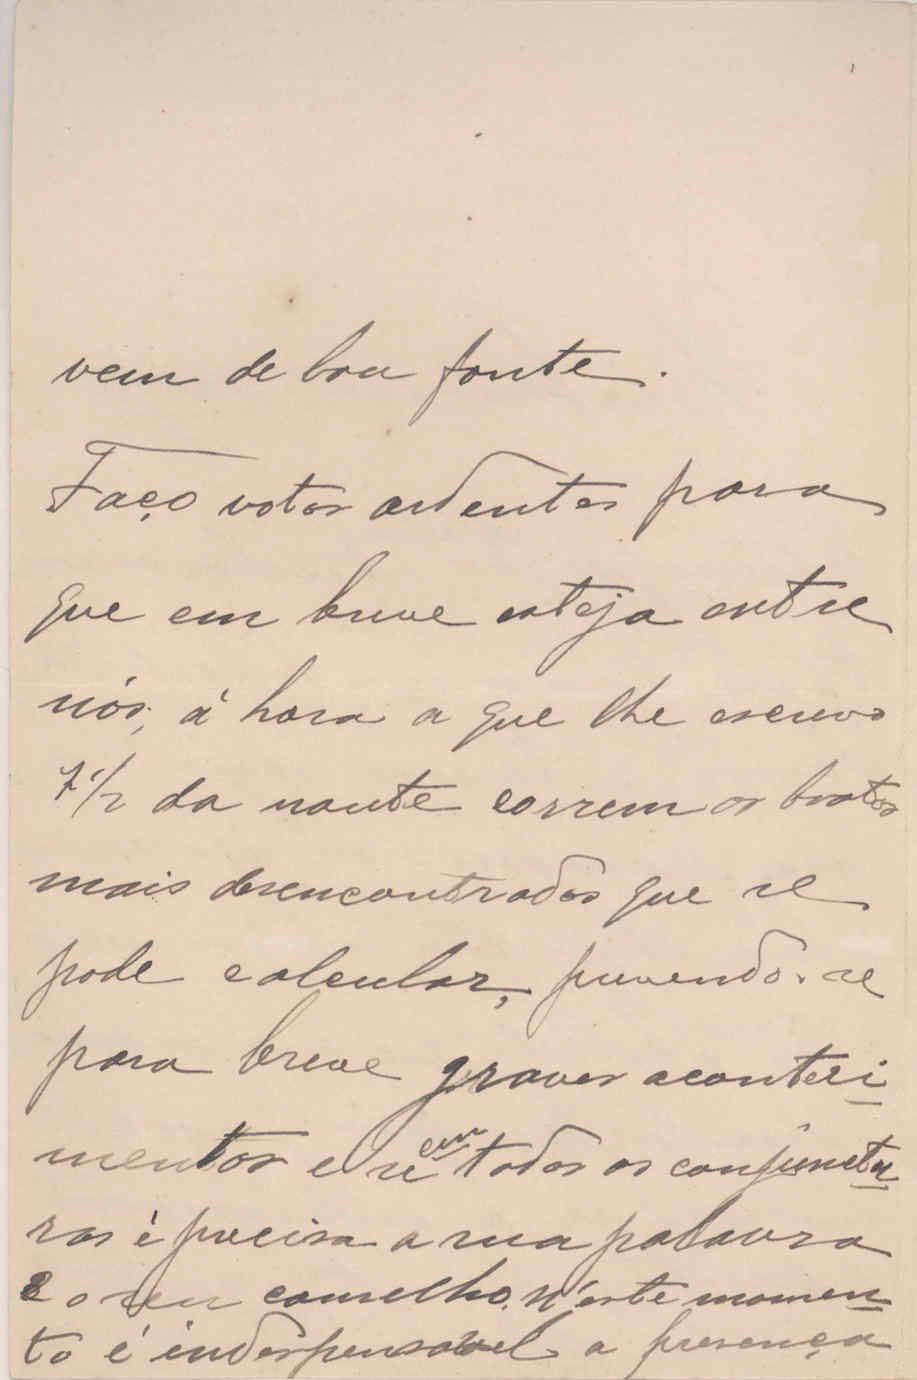 vem de boa fonte.
Faço votos ardentes para
que em breve esteja entre
nós, á hora a que lhe escrevo
7 1/2 da noute correm os boatos
mais desencontrados que se
pode calcular, prevendo-se
para breve graves aconteci-
mentos e se em todas as conjunctu-
ras é precisa a sua palavra
e o seu conselho, n'este momen-
to é indespensavel a presença